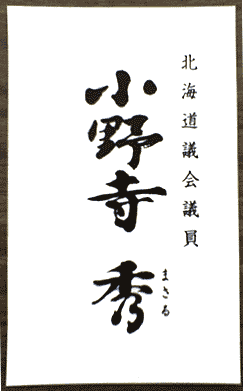 北海道議会議員
小野寺 秀
まさる